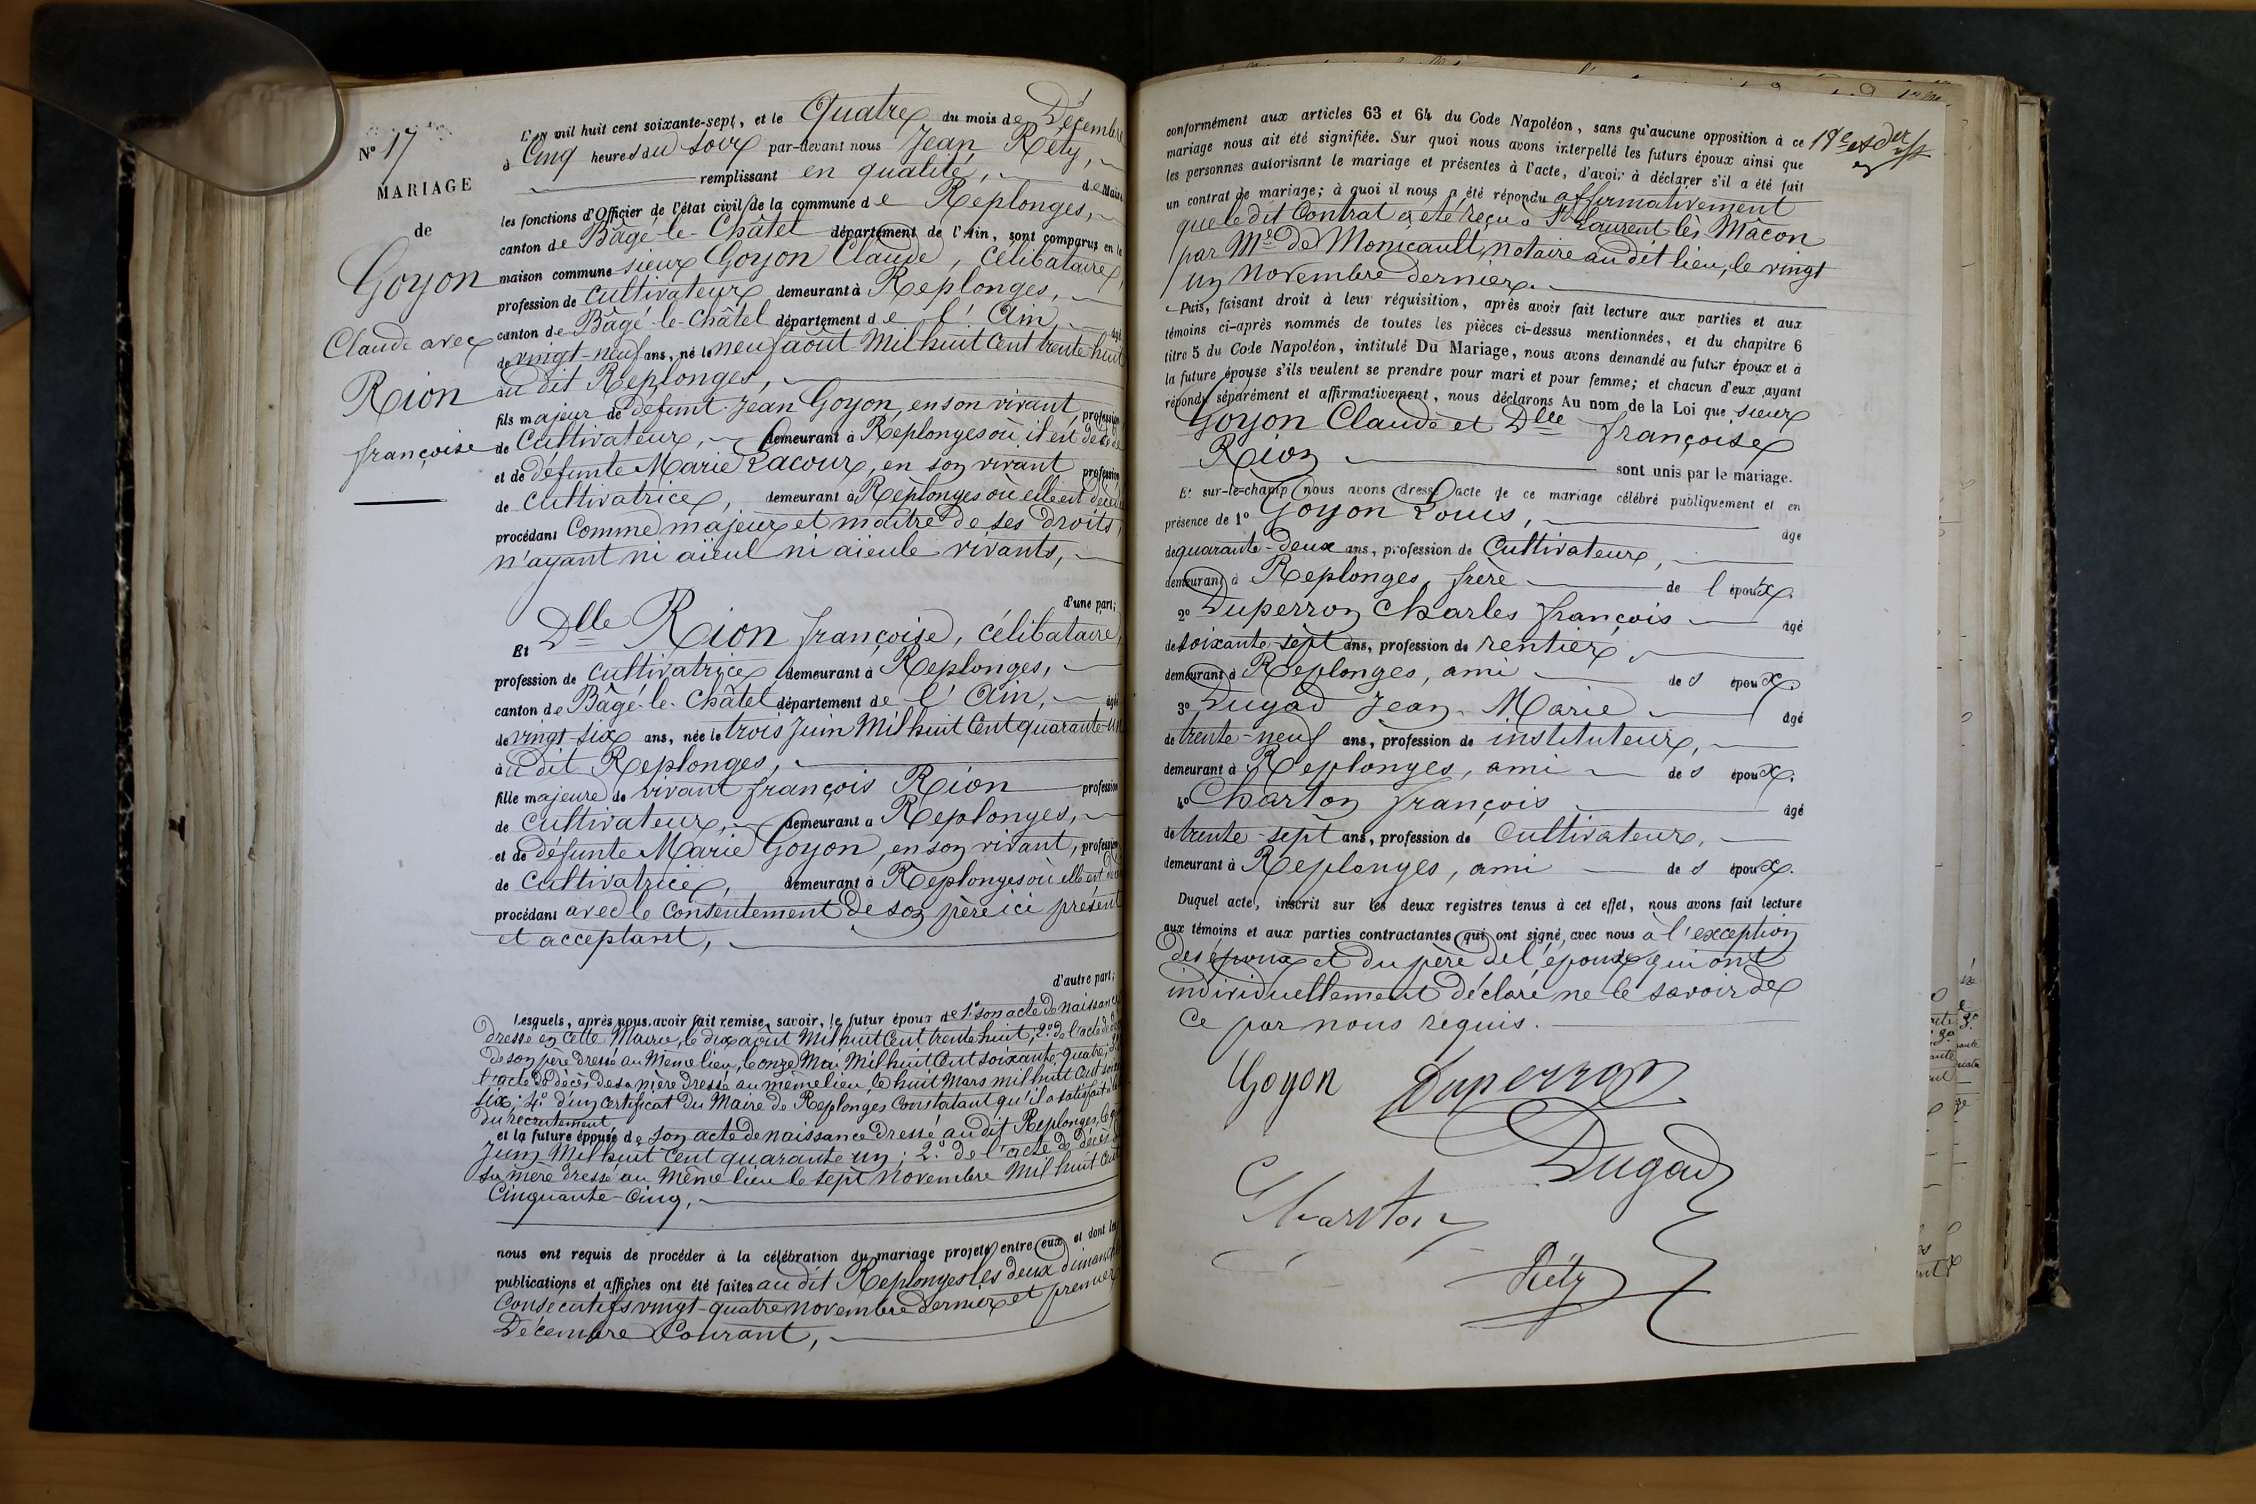 N° 17
MARIAGE
de
Goyon
Claude avec
Rion
françoise
L'an mil huit cent soixante-sept, et le Quatre du mois de Décembre
à Cinq heures du soir par-devant nous Jean Réty,
remplissant en qualité, de Maire
les fonctions d'Officier de l'état civil de la commune de Replonges,
canton de Bâgé-le-Châtel département de l'Ain, sont comparus en la
maison commune sieur Goyon Claude, Célibataire,
profession de cultivateur demeurant à Replonges,
canton de Bâgé-le-Châtel département de l'Ain, âgé
de vingt-neuf ans, né le neuf août Mil huit Cent trente huit
au dit Replonges,
fils majeur de défunt Jean Goyon, en son vivant, profession
de Cultivateur, demeurant à Replonges où il est décédé
et de défunte Marie Lacour, en son vivant profession
de cultivatrice, demeurant à Replonges où elle est décédée
procédant comme majeur et maître de ses droits,
n'ayant ni aïeul ni aïeule vivants,
d'une part;
Et Dlle Rion françoise, célibataire,
profession de cultivatrice demeurant à Replonges,
canton de Bâgé-le-Châtel département de l'Ain, âgée
de vingt six ans, née le trois Juin Mil huit Cent quarante-un
au dit Replonges,
fille majeure de vivant françois Rion profession
de Cultivateur, demeurant à Replonges,
et de défunte Marie Goyon, en son vivant, profession
de cultivatrice, demeurant à Replonges où elle est
procédant avec le consentement de son père ici présent
et acceptant,
d'autre part;
Lesquels, après nous avoir fait remise, savoir, le futur époux de 1° son acte de naissance
dressé en cette Mairie, le dix août Mil huit Cent trente huit; 2° de l'acte de
de son père dressé au Même lieu, le onze Mai Mil huit Cent soixante-quatre;
l'acte de décès de sa mère dressé au même lieu le huit Mars mil huit Cent
six; 4° d'un certificat du Maire de Replonges Constatant qu'il a satisfait
du recrutement,
et la future épouse de son acte de naissance dressé au dit Replonges, le
Juin Mil huit Cent quarante un; 2° de l'acte de décès
sa mère dressé au Même lieu le sept Novembre Mil huit Cent
Cinquante-Cinq,
nous ont requis de procéder à la célébration du mariage projeté entre eux et dont les
publications et affiches ont été faites au dit Replonges les deux dimanches
Consécutifs vingt-quatre novembre dernier et premier
Décembre Courant,
conformément aux articles 63 et 64 du Code Napoléon, sans qu'aucune opposition à ce
mariage nous ait été signifiée. Sur quoi nous avons interpellé les futurs époux ainsi que
les personnes autorisant le mariage et présentes à l'acte, d'avoir à déclarer s'il a été fait
un contrat de mariage; à quoi il nous a été répondu affirmativement
que le dit Contrat a été reçu à St Laurent lès Mâcon
par Me de Monicault, notaire au dit lieu, le vingt
un Novembre dernier.
Puis, faisant droit à leur réquisition, après avoir fait lecture aux parties et aux
témoins ci-après nommés de toutes les pièces ci-dessus mentionnées, et du chapitre 6
titre 5 du Code Napoléon, intitulé Du Mariage, nous avons demandé au futur époux et à
la future épouse s'ils veulent se prendre pour mari et pour femme; et chacun d'eux ayant
répondu séparément et affirmativement, nous déclarons Au nom de la Loi que sieur
Goyon Claude et Dlle françoise
Rion sont unis par le mariage.
Et sur-le-champ nous avons dressé acte de ce mariage célébré publiquement et en
présence de 1° Goyon Louis, âgé
de quarante-deux ans, profession de Cultivateur,
demeurant à Replonges, frère de l'époux.
2° Duperron Charles françois âgé
de soixante-sept ans, profession de rentier,
demeurant à Replonges, ami des époux.
3° Dugad Jean-Marie âgé
de trente-neuf ans, profession de instituteur,
demeurant à Replonges, ami des époux.
4° Charton françois âgé
de trente-sept ans, profession de Cultivateur,
demeurant à Replonges, ami des époux.
Duquel acte, inscrit sur les deux registres tenus à cet effet, nous avons fait lecture
aux témoins et aux parties contractantes qui ont signé, avec nous à l'exception
des époux et du père de l'épouse qui ont
individuellement déclaré ne le savoir de
ce par nous requis.
Goyon Duperron
Dugad
Charton
Réty